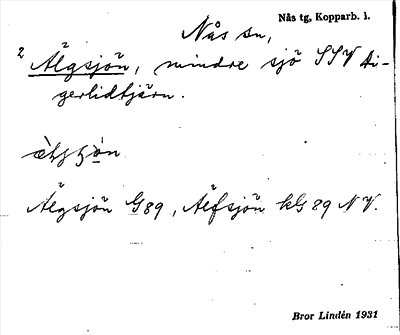 Nås tg, Kopparb. l.
Nås sn,
2 Älgsjön, mindre sjö SSV Ai-
gerlidtjärn.
Älgsjön G89, Älfsjön kG 89 NV.
Bror Lindén 1931